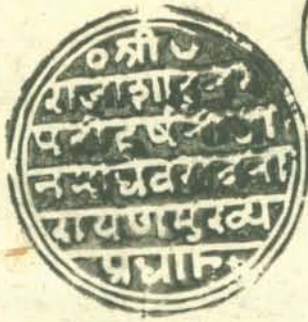 ० श्री ७
राजाशाहुनर
पतीहर्षनीधा
नमाधवरावना
रायणमुख्य
प्रधान